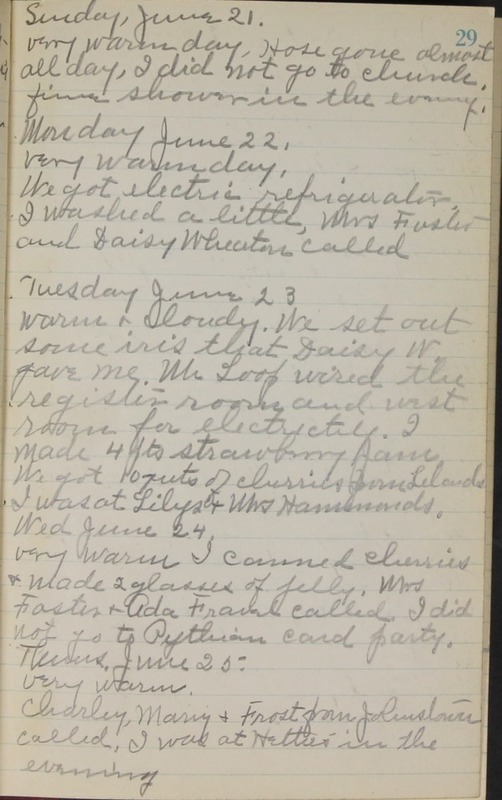 29
Sunday, June 21.
very warm day, Hose gone almost
all day, I did not go to church.
fine shower in the evening.
Monday June 22,
very warm day,
We got electric refrigerator.
I washed a little, Mrs Foster
and Daisy Wheaton called
Tuesday June 23
warm & cloudy. We set out
some iris that Daisy W.
gave me. Mr Loop wired the
register room and west
room for electricity. I
made 4 pts strawberry jam
We got 10 quts of cherries from Lelands
I was at Lilys & Mrs Hammonds.
Wed June 24,
very warm I canned cherries
& made 2 glasses of jelly. Mrs
Foster & Ada called. I did
not go to Pythian card party.
Thurs. June 25-
very warm.
Charley, Mary & Frost from Johnstown
called. I was at Hetties in the
evening